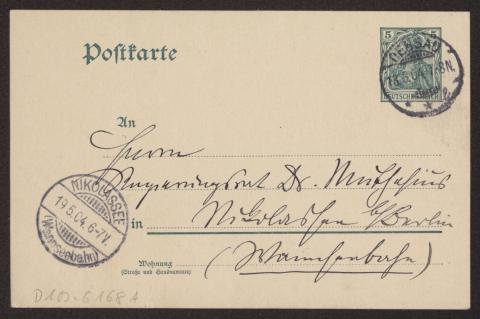 Postkarte
5 5
DEUTSCHES REICH
DESSAU
18.5.04. 7-8N.
An
Herrn
Regierungsrat Dr. Muthesius
in Nikolassee b/Berlin
(Wannseebahn)
Wohnung
(Straße und Hausnummer)
NIKOLASSEE
19.5.04. 6-7V.
(Wannseebahn)
D 102-6168 A